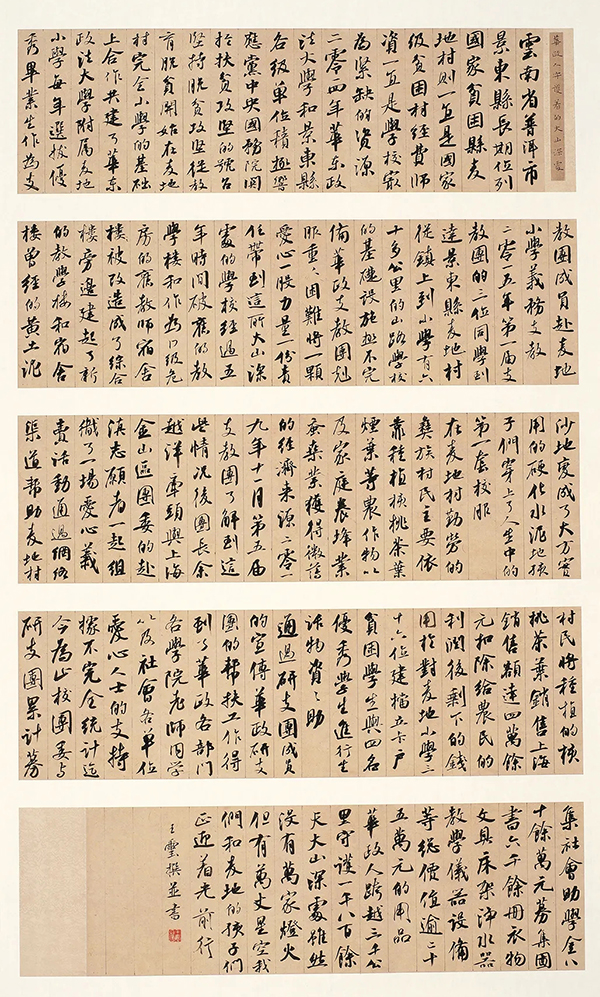 華政人守護着的大山深處
雲南省普洱市
景東縣長期位列
國家貧困縣麦
地村則一直是國家
級貧困村經費師
資一直是學校最
為緊缺的資源
二零一四年華東政
法大學和景東縣
各級單位積極響
應黨中央國務院關
於扶貧攻堅的號召
堅持脫貧攻堅從教
育脫貧開始在麦地
村完全小學的基礎
上合作共建了華東
政法大學附属麦地
小學每年選拔優
秀畢業生作為支
教團成員赴麦地
小學義務支教
二零一五年第一届支
教團的三位同學到
達景東縣麦地村
從鎮上到小學有六
十多公里的山路學校
的基礎設施並不完
備華政支教團剋
服重重困難將一顆
愛心一股力量一份責
任帶到這所大山深
處的學校經過五
年時間破舊的教
學樓和作為D級危
房的舊教師宿舍
樓被改造成了綜合
樓旁邊建起了新
的教學樓和宿舍
樓曾經的黃土泥
沙地變成了大方實
用的硬化水泥地孩
子們穿上了人生中的
第一套校服
在麦地村勤勞的
彝族村民主要依
靠種植核桃茶葉
煙葉等農作物以
及家庭養殖業
蠶桑業獲得微薄
的經濟來源二零一
九年十一月第五届
支教團了解到這
些情況後團長余
越洋牽頭與上海
金山區團委的赴
滇志願者一起組
織了一場愛心義
賣活動通過網絡
渠道幫助麦地村
村民將種植的核
桃茶葉銷售上海
銷售額達四萬餘
元扣除給農民的
利潤後剩下的錢
用於對麦地小學三
十六位建檔立卡戶
貧困學生與四名
優秀學生進行生
活物資之助
通過研支團成員
的宣傳華政研支
團的幫扶工作得
到了華政各部門
各學院老師同學
以及社會各單位
愛心人士的支持
據不完全統計迄
今為止校團委與
研支團累計募
集社會助學金八
十餘萬元募集圖
書六千餘冊衣物
文具床架淨水器
教學儀器設備
等總價值逾二十
五萬元的用品
華政人跨越三千公
里守護一千八百餘
天大山深處雖然
沒有萬家燈火
但有萬丈星空我
們和麦地的孩子們
正迎着光前行
王雲撰並書